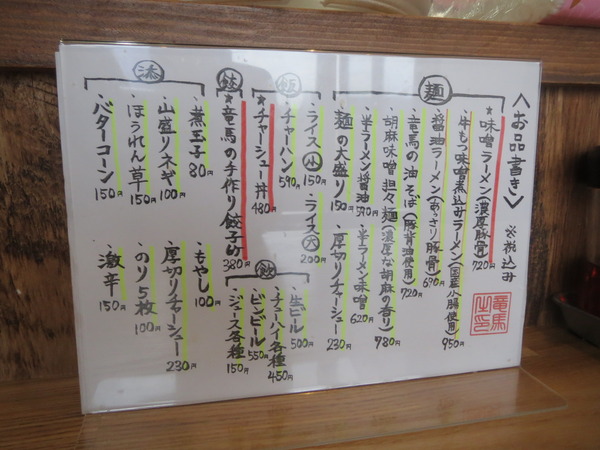 <お品書き> ※税込み
麺
★味噌ラーメン(濃厚豚骨) 720円
・牛もつ味噌煮込みラーメン(国産小腸使用) 950円
・醤油ラーメン(あっさり豚骨) 690円
・竜馬の油そば(豚背油使用) 720円
・胡麻味噌担々麺(濃厚な胡麻の香り) 780円
・半ラーメン醤油 590円 ・半ラーメン味噌 620円
・麺の大盛り 150円 ・厚切りチャーシュー 230円
飯
・ライス小 150円 ・ライス大 200円
・チャーハン 590円
★チャーシュー丼 480円
餃
★竜馬の手作り餃子6ヶ 380円
添
・煮玉子 80円 ・もやし 100円
・山盛りネギ 100円 ・厚切りチャーシュー 230円
・ほうれん草 150円 ・のり5枚 100円
・バターコーン 150円 ・激辛 150円
飲
生ビール 500円
チューハイ各種 450円
ビンビール 550円
ジュース各種 150円
竜馬